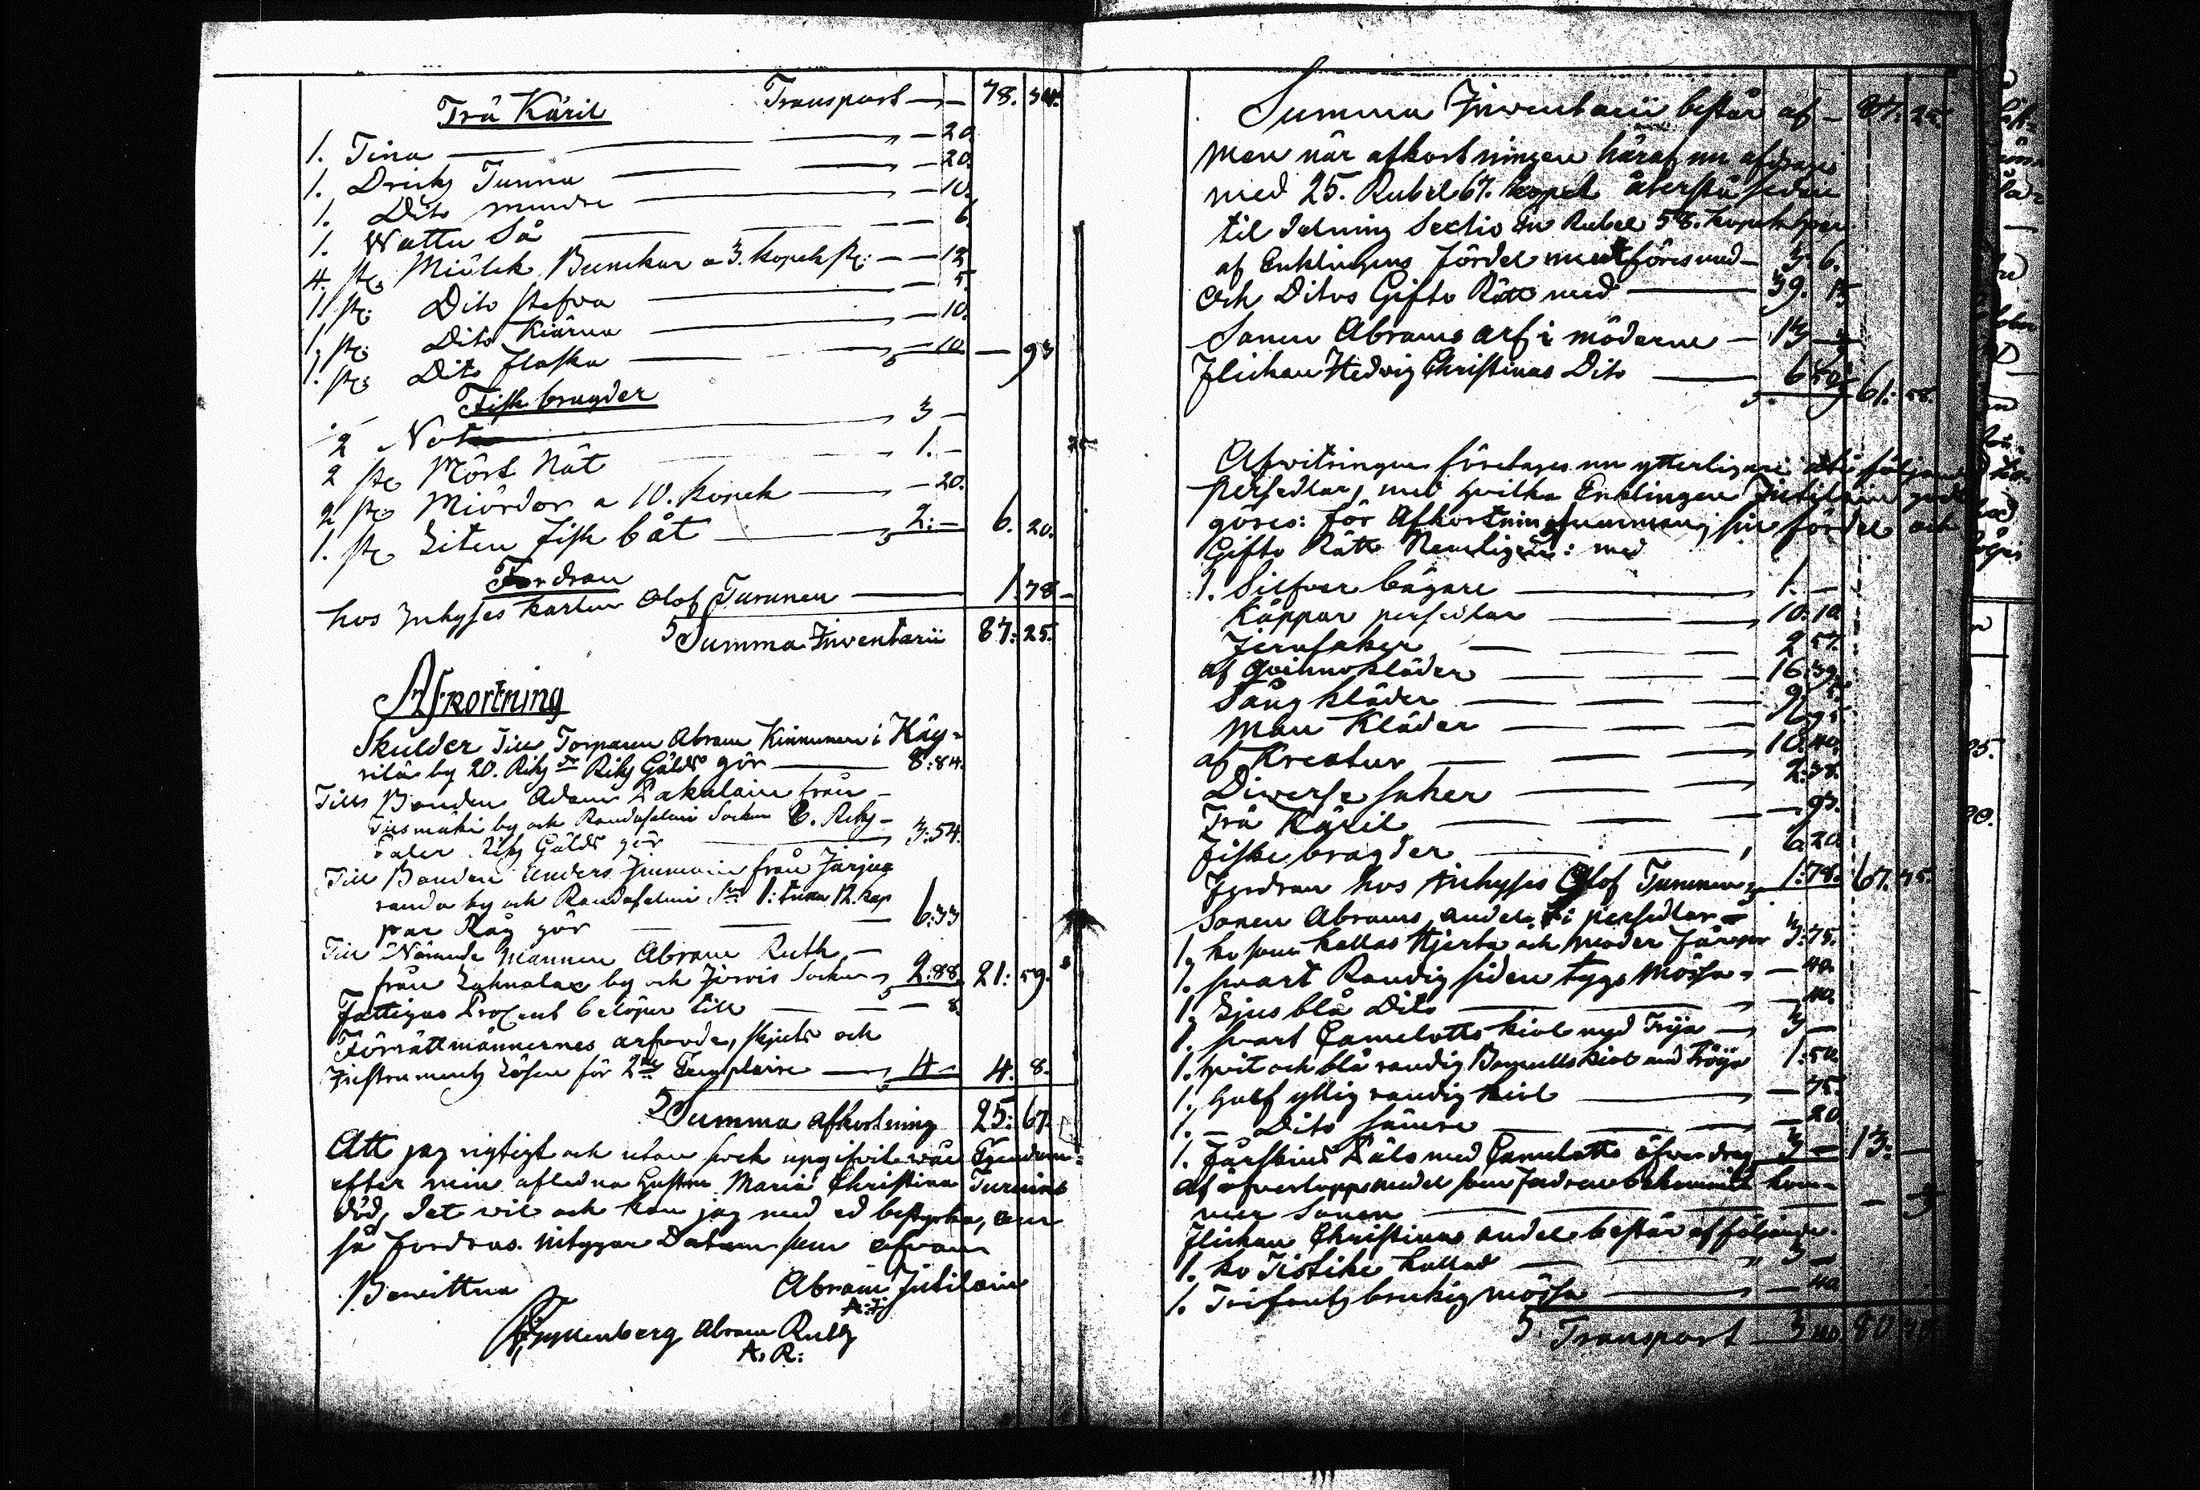 Transport — — 78. 34.
Trä Käril
1. Tina — — — 20
1. Dricks Tunna — — — 20.
1. Dito mindre — — — 10.
1. Wattu Så — — — 6.
4. st. Miölck Bunckar a 3. kopek st: — — 12
1 st: Dito stefva — — 5.
1 st: Dito Kiärna — — 10.
1. st: Dito Flaska — — 10 — 93
Fisk bragder
2 Not — 3 —
2 st. Mört Nät — 1. —
2 st. Miördor a 10. kopek — — 20.
1. st. Liten Fisk båt — 2:— 6. 20.
Fordran
hos Inhyses karlen Olof Turunen — 1. 78
Summa Inventarii 87: 25.
Afkortning
Skulder Till Torparen Abram Kinnunen i Käg-
rilä by 20. Riks dr Riks Gälds gör — 8:84.
Till Bonden Adam Pakalain från —
by och Randasalmi Socken 8. Riks-
daler Riks Gälds gör — 3:54.
Till Bonden Anders Immoin från Järju
randa by och Randasalmi Sn 1: tunna 12. kap
par Råg gör — — 6:33
Till Nämnde mannen Abram Ruth —
från by och Jorois Socken 2:88 21: 59.
Fattigas Procent belöper till — — 8.
Förrättmännernes arfvode, skjuts och
Instruments Lösen för 2ne Exemplaire — 4 — 4. 8.
Summa afkortning 25: 67.
Att jag rigtigt och utan svek upgifvit wår Egendom
efter min afledna Hustru Maria Christina Turuins
död, det vil och kan jag med ed bestyrka, om
så fordras. utsupra Datum som ofvan
Bewittna Abram Jutilain
A. J.
Abram Ruth
A. R:
Summa Inventarii består af — 87. 25.
Men när afkortningen häraf nu afdrages
med 25. Rubel 67. kopek återstå sedan
til delning Sextio En Rubel 58. kopek hvar
af Enklingens fördel utföres med — 3. 6.
Och Ditos Gifto Rätt med — 39. 1
Sonen Abrams arf i möderne — 13
Flickan Hedvig Christinas Dito — 6 50 61: 58.
Afvitringen företages nu ytterligare uti följande
persedlar, med hvilka Enklingen Jutilain god
göres: för Afkortnings summan, sin fördel och
Gifto Rätt Nemligen: med
1. Silfver bägare — 1. —
Koppar persedlar — 10: 10
Jernsaker — — 2 57.
af qvinnokläder — — 16:39.
Säng kläder — — 9.
Man Kläder — —
af Kreatur — — — 10:40.
Diverse saker — — 2:38.
Trä Käril — — — 93.
Fiske bragder — — 6 20
Fordran hos Inhyses Olof Turunen — 1:78. 67. 75.
Sonen Abrams andel i persedlar
1. ko som kallas Hjerta och moder får 3:75.
1. svart Randig siden tygs mössa — 40
1. Ljus blå Dito — — 40
1. svart Camelotts kiol med Tröja — 3 —
1. hvit och blå randig Bomulls kiol med Tröja 1:50.
1. half yllig randig kiol — — 75.
1. — Dito sämre — — 20
1. Fårskins Päls med Camelotts öfverdrag 3 — 13. —
Af öfverlopps medel som Fadren bekommit kom-
mer Sonen — — — — — 3
Flickan Christinas andel består af följande.
1. ko Tiötiki kallad — — 5 —
1. brukig mössa — — 40
Transport — 5 40. 80